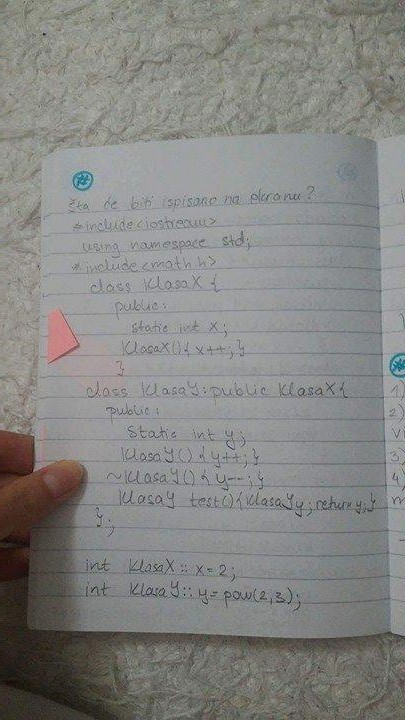 Šta će biti ispisano na ekranu?
#include<iostream>
using namespace std;
#include<math.h>
class KlasaX {
public:
static int x;
KlasaX(){x++;}
}
class KlasaY:public KlasaX{
public:
Static int y;
KlasaY(){y++;}
~KlasaY(){y--;}
KlasaY test(){KlasaY y;return y;}
};
int KlasaX::x=2;
int KlasaY::y=pow(2,3);
1)
2)
3)
4)